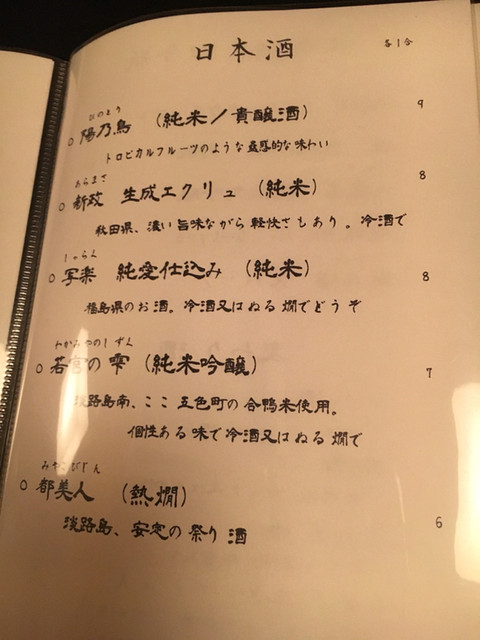 日本酒 各1合
ひのとり
○ 陽乃鳥 (純米/貴醸酒) 9
トロピカルフルーツのような蠱惑的な味わい
あらまさ
○ 新政 生成エクリュ (純米) 8
秋田県、濃い旨味ながら軽快さもあり。冷酒で
しゃらく
○ 写楽 純愛仕込み (純米) 8
福島県のお酒。冷酒又はぬる燗でどうぞ
わかみやのしずく
○ 若宮の雫 (純米吟醸) 7
淡路島南、ここ五色町の合鴨米使用。
個性ある味で冷酒又はぬる燗で
みやこびじん
○ 都美人 (熱燗)
淡路島、安定の祭り酒 6